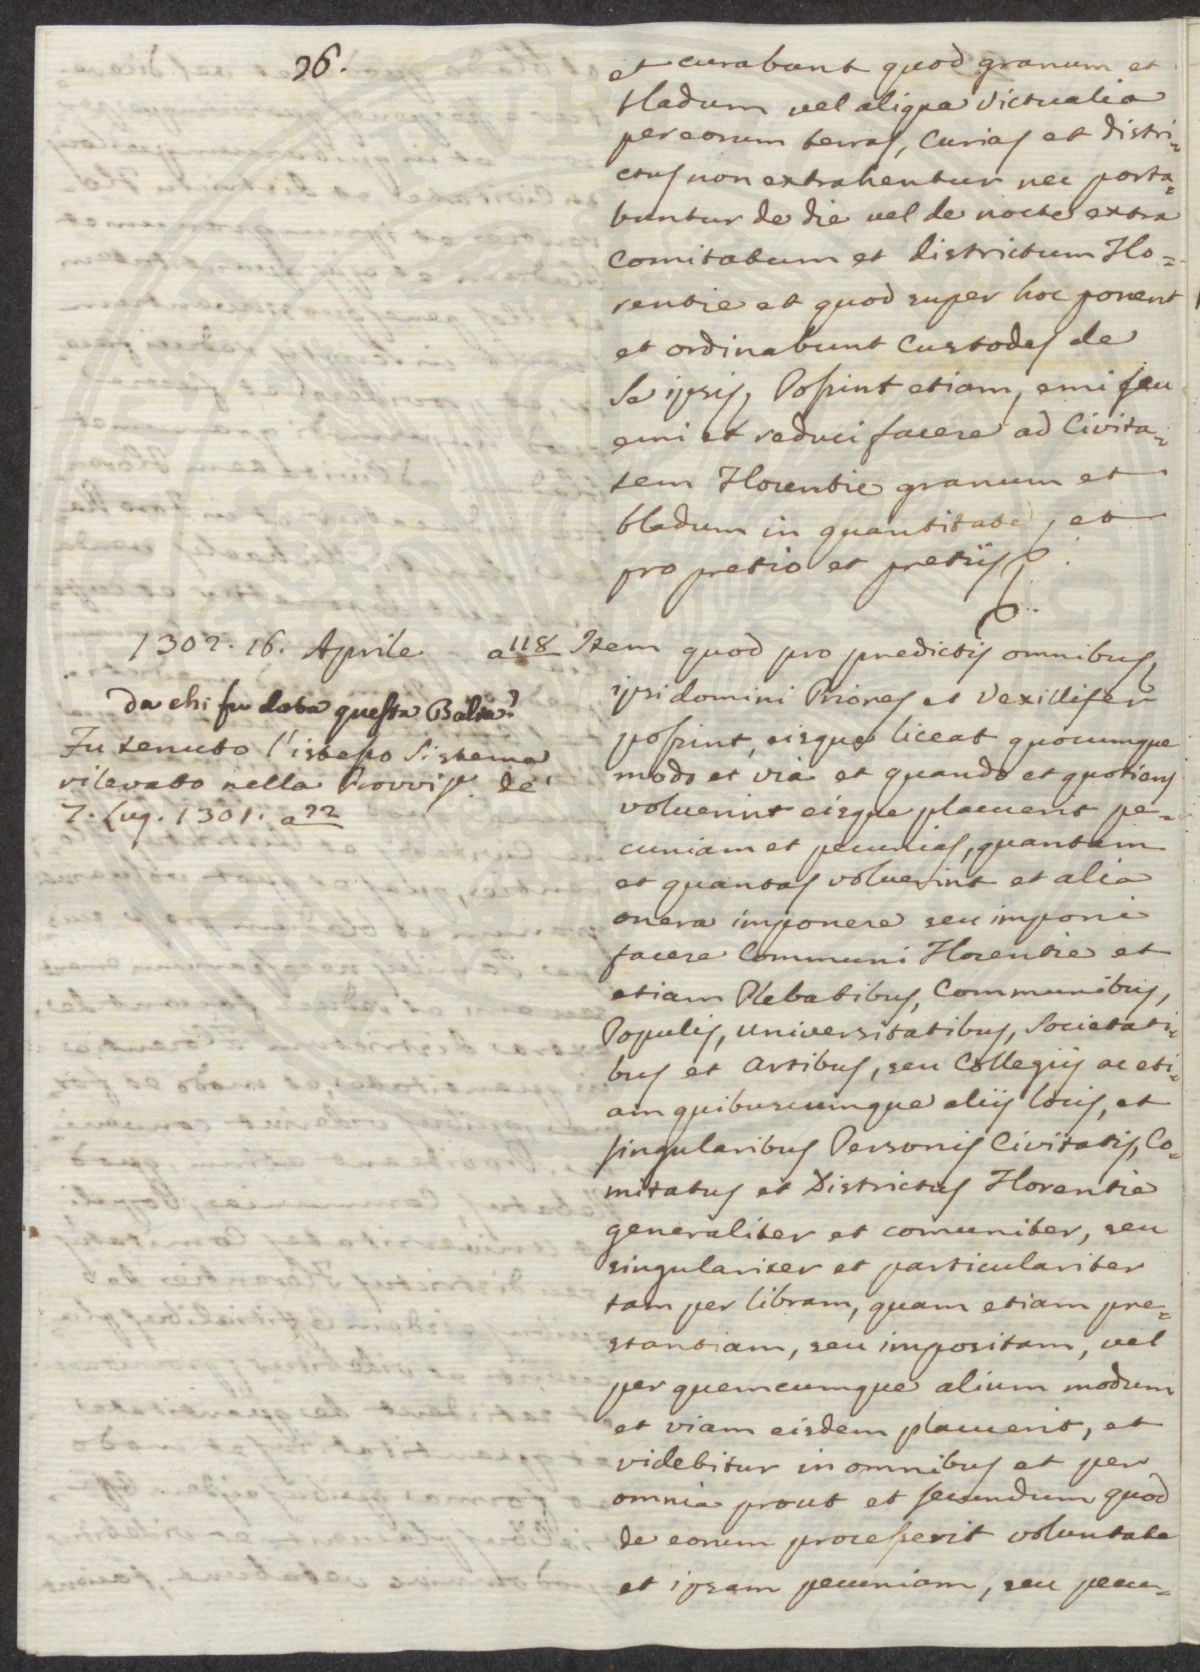 26.
et curabunt quod granum et
bladum vel aliqua victualia
per eorum terras, Curias et distri=
ctus non extrahentur nec porta=
buntur de die vel de nocte extra
Comitatum et districtum Flo=
rentie et quod super hoc ponent
et ordinabunt Custodes de
Se ipsis, Possint etiam, emi seu
emi et reduci facere ad Civita=
tem Florentie granum et
bladum in quantitate, et
pro pretio et pretijs
1302. 16. Aprile a 118 Item quod pro predictis omnibus,
ipsi domini Priores et Vexillifer
possint, eisque liceat quocumque
modo et via et quando et quotiens
voluerint eisque placuerit pe=
cuniam et pecunias, quantam
et quantas voluerint et alia
onera imponere seu imponi
facere Communi Florentie et
etiam Plebatibus, Communibus,
Populis, Universitatibus, Societati=
bus et Artibus, seu Collegijs ac eti=
am quibuscumque alijs locis, et
singularibus Personis Civitatis, Co=
mitatus et Districtus Florentie
generaliter et comuniter, seu
singulariter et particulariter
tam per libram, quam etiam pre=
stantiam, seu impositam, vel
per quemcumque alium modum
et viam eisdem placuerit, et
videbitur in omnibus et per
omnia prout et secundum quod
de eorum processerit voluntate
et ipsam pecuniam, seu pecu=
da chi fu data questa Balìa?
Fu tenuto l'istesso Sistema
rilevato nella Provvis. de'
7. Lug. 1301. a 22